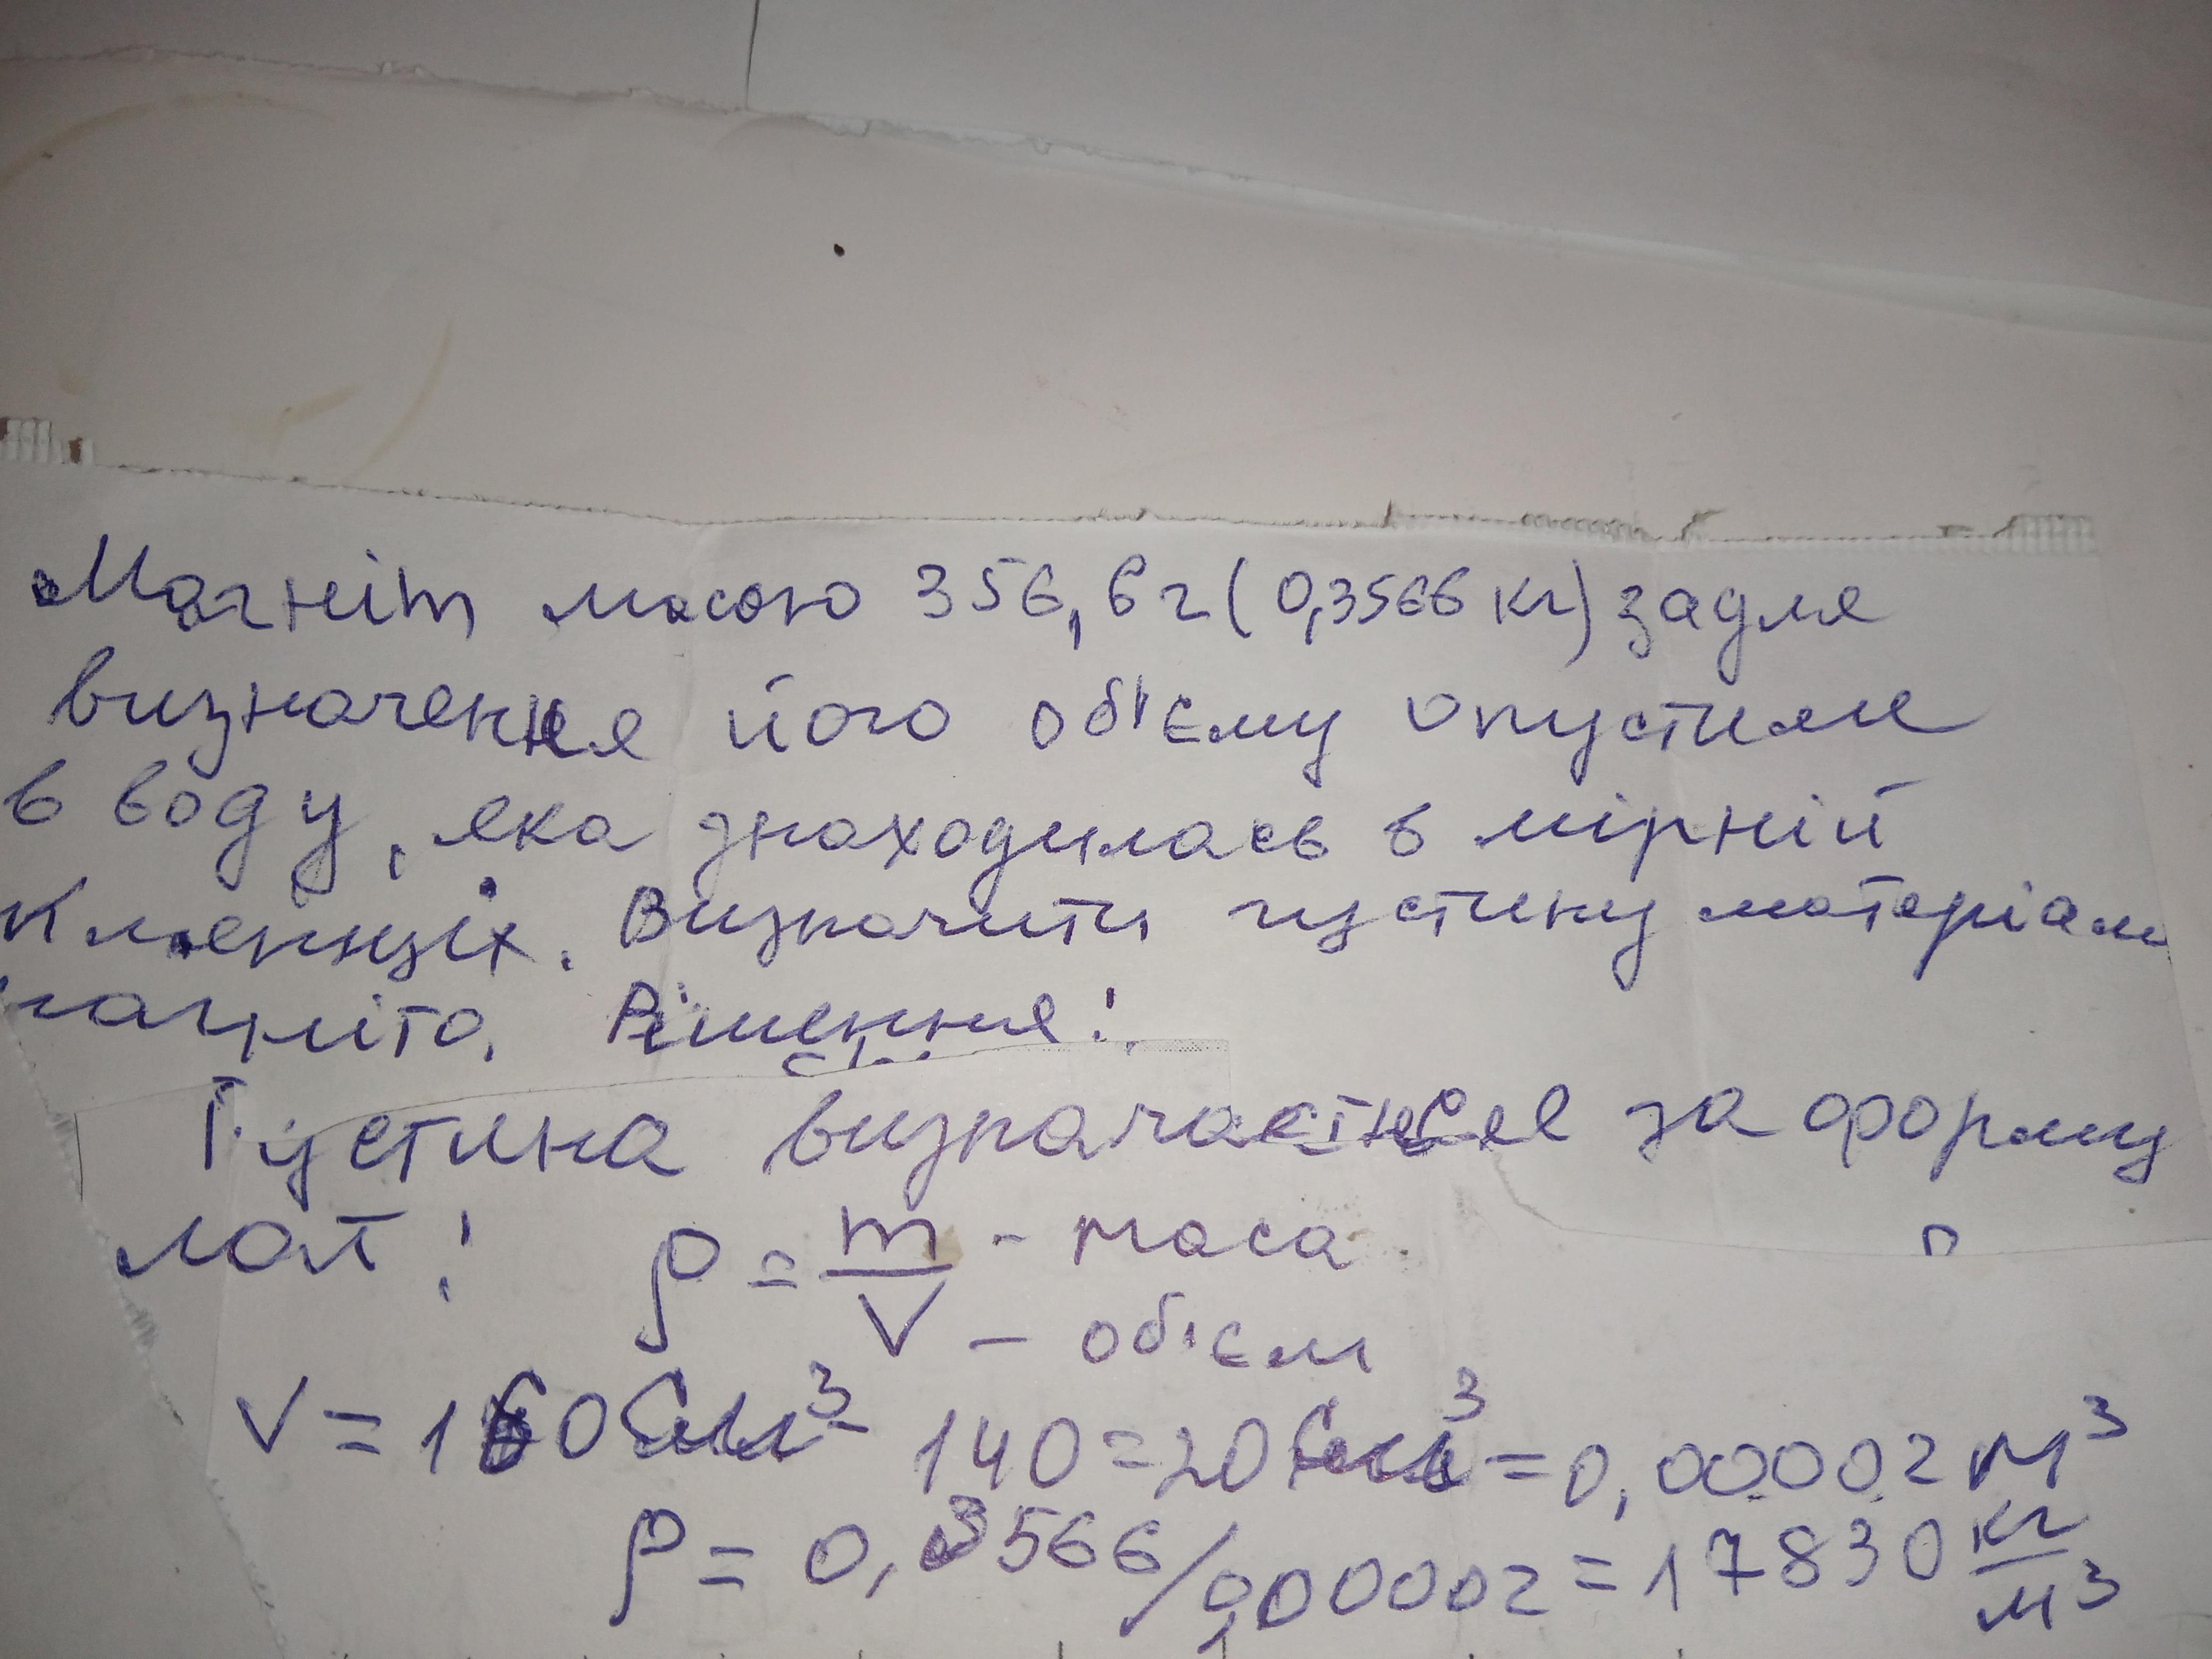 Магніт масою 356,6г (0,3566 кг) задля
визначення його об'єму опустили
в воду, яка знаходилась в мірній
Визначити густину матеріалу
магніта. Рішення:
Густина визначається за форму
лой: ρ = m/V - маса
- об'єм
V = 160 см³ - 140 = 20 см³ = 0,00002 м³
ρ = 0,3566/0,00002 = 17830 кг/м³